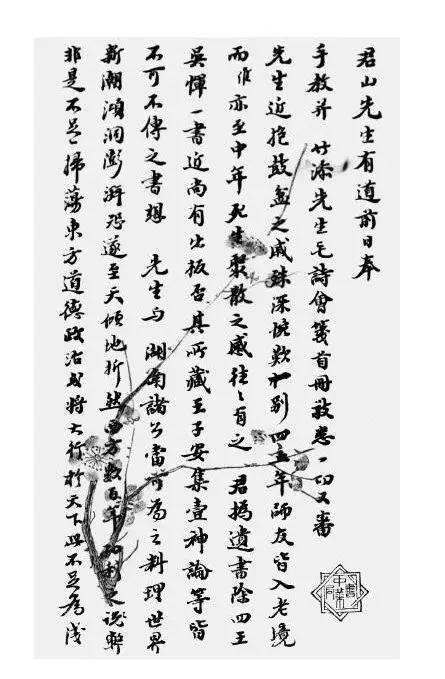 君山先生有道前日奉
手教并 竹添先生毛詩會箋首冊敬悉一切又審
先生近抱鼓盆之戚殊深惋歎十別四五年師友皆入老境
而維亦至中年死生聚散之感往々有之 君撝遺書除四王
吳惲一書近尚有出板否其所藏王子安集壹神論等皆
不可不傳之書想 先生与 湖南諸公當可為之料理世界
新潮澒洞澎湃恐遂至天傾地折然西方數百年功利之弊
非是不足一掃蕩東方道德政治或將大行於天下此不足為淺
中華書局